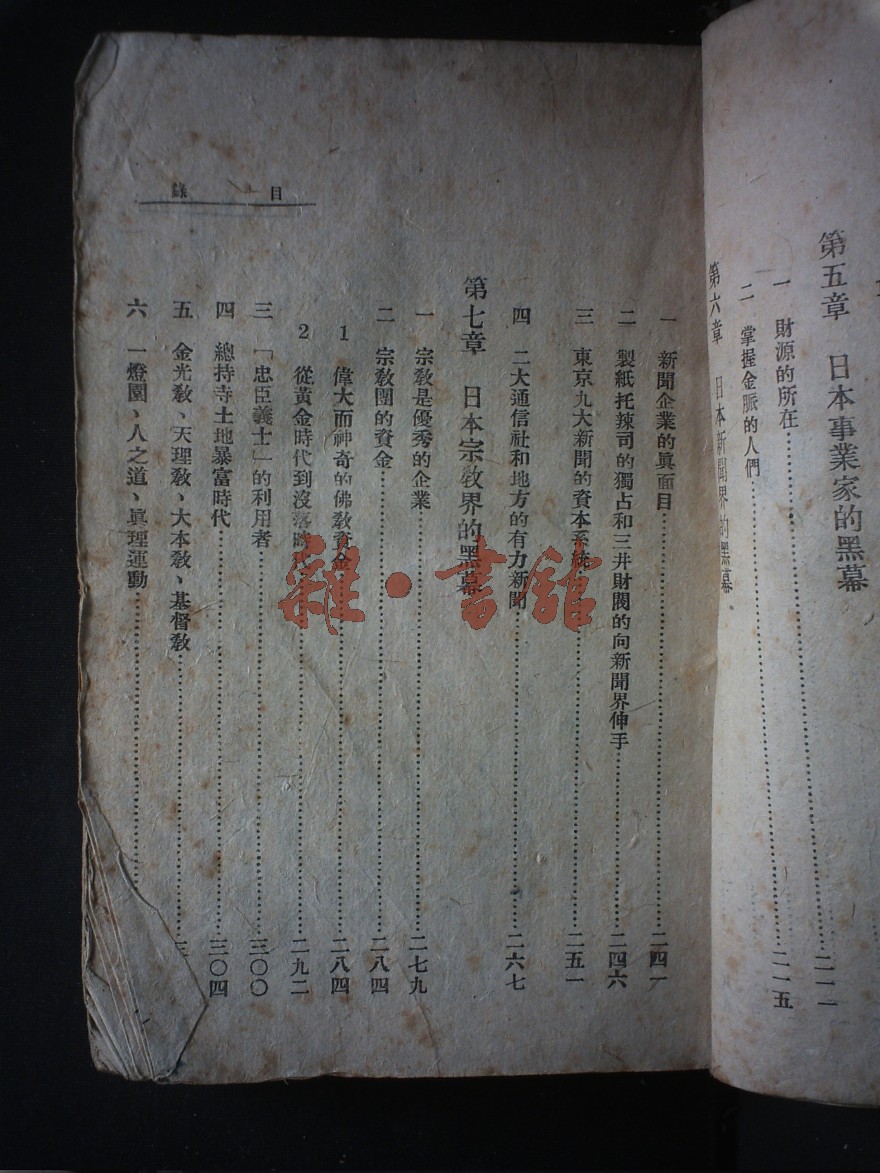 第五章　日本事業家的黑幕
一　財源的所在……二一一
二　掌握金脈的人們……二一五
第六章　日本新聞界的黑幕
目錄
一　新聞企業的眞面目……二四一
二　製紙托辣司的獨占和三井財閥的向新聞界伸手……二四六
三　東京九大新聞的資本系統……二五一
四　二大通信社和地方的有力新聞……二六七
第七章　日本宗敎界的黑幕
一　宗敎是優秀的企業……二七九
二　宗敎團的資金……二八四
1　偉大而神奇的佛敎資金……二八四
2　從黃金時代到沒落時代……二九二
三　「忠臣義士」的利用者……三〇〇
四　總持寺土地暴富時代……三〇四
五　金光敎、天理敎、大本敎、基督敎……三
六　一燈園、人之道、眞理運動……
雜·書館